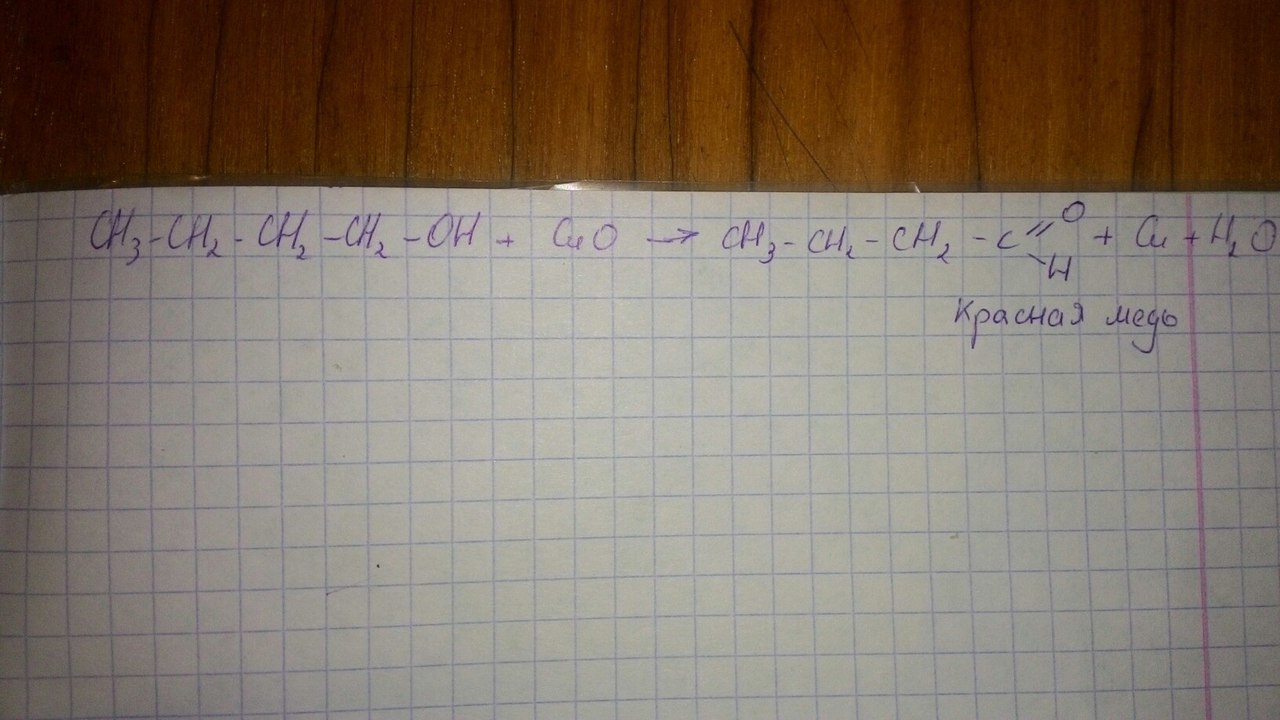 CH₃-CH₂-CH₂-CH₂-OH + CuO → CH₃-CH₂-CH₂-C=O + Cu + H₂O
\H
Красная медь